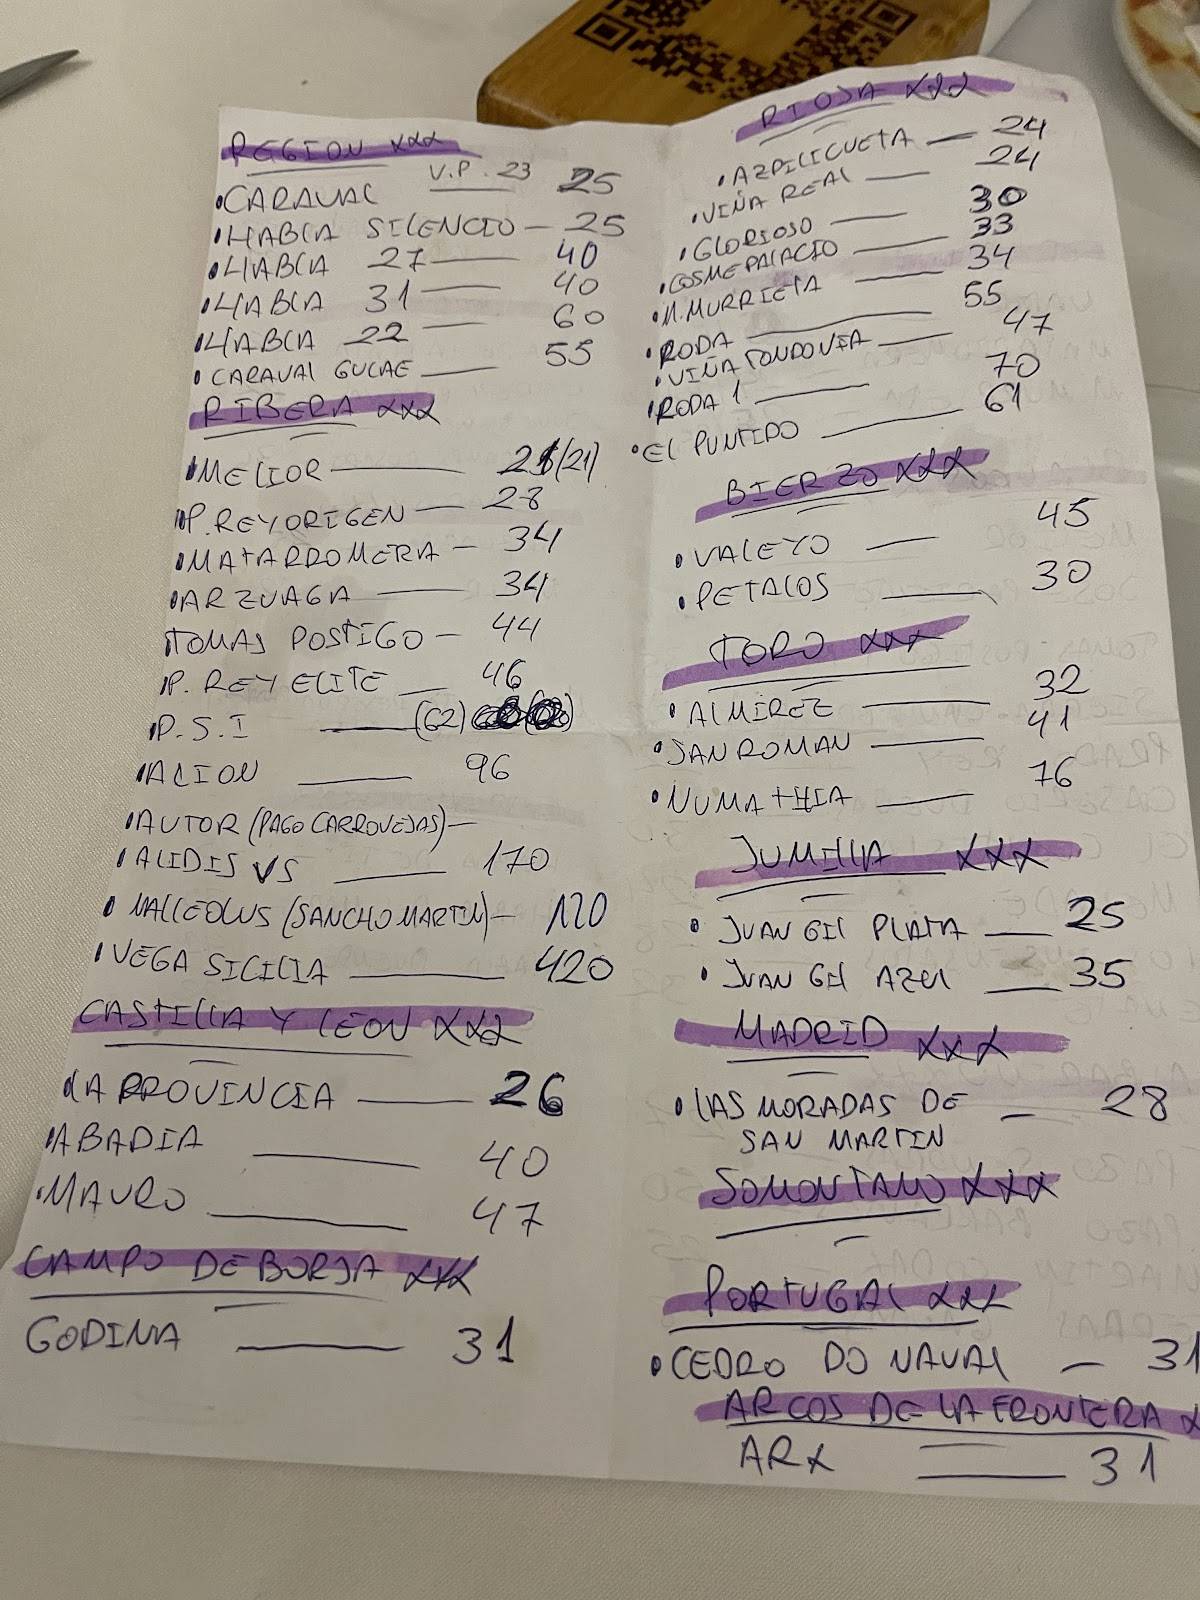 REGION xxx
V.P. 23
CARAVAL 25
HABLA SILENCIO - 25
HABLA 27 40
HABLA 31 40
HABLA 22 60
CARAVAL GULAE 55
RIBERA xxx
MELIOR (21)
P. REY ORIGEN 28
MATARROMERA - 34
ARZUAGA 34
TOMAS POSTIGO - 44
P. REY ELITE 46
P.S.I (62)
ALION 96
AUTOR (PAGO CARROVEJAS)
ALIDIS VS 170
MALLEOLUS (SANCHO MARTIN) - 120
VEGA SICILIA 420
CASTILLA Y LEON xxx
LA PROVINCIA 26
ABADIA 40
MAURO 47
CAMPO DE BORJA xxx
GODINA 31
RIOJA xxx
AZPILICUETA 24
VIÑA REAL 24
GLORIOSO 30
COSME PALACIO 33
M. MURRIETA 34
RODA 55
VIÑA TONDONIA 47
RODA 1 70
EL PUNTIDO 61
BIERZO xxx
VALEYO 45
PETALOS 30
TORO xxx
ALMIREZ 32
SAN ROMAN 41
NUMATHIA 76
JUMILLA xxx
JUAN GIL PLATA 25
JUAN GIL AZUL 35
MADRID xxx
LAS MORADAS DE - 28
SAN MARTIN
SOMONTANO xxx
PORTUGAL xxx
CEDRO DO NAVAL - 31
ARCOS DE LA FRONTERA x
ARX 31